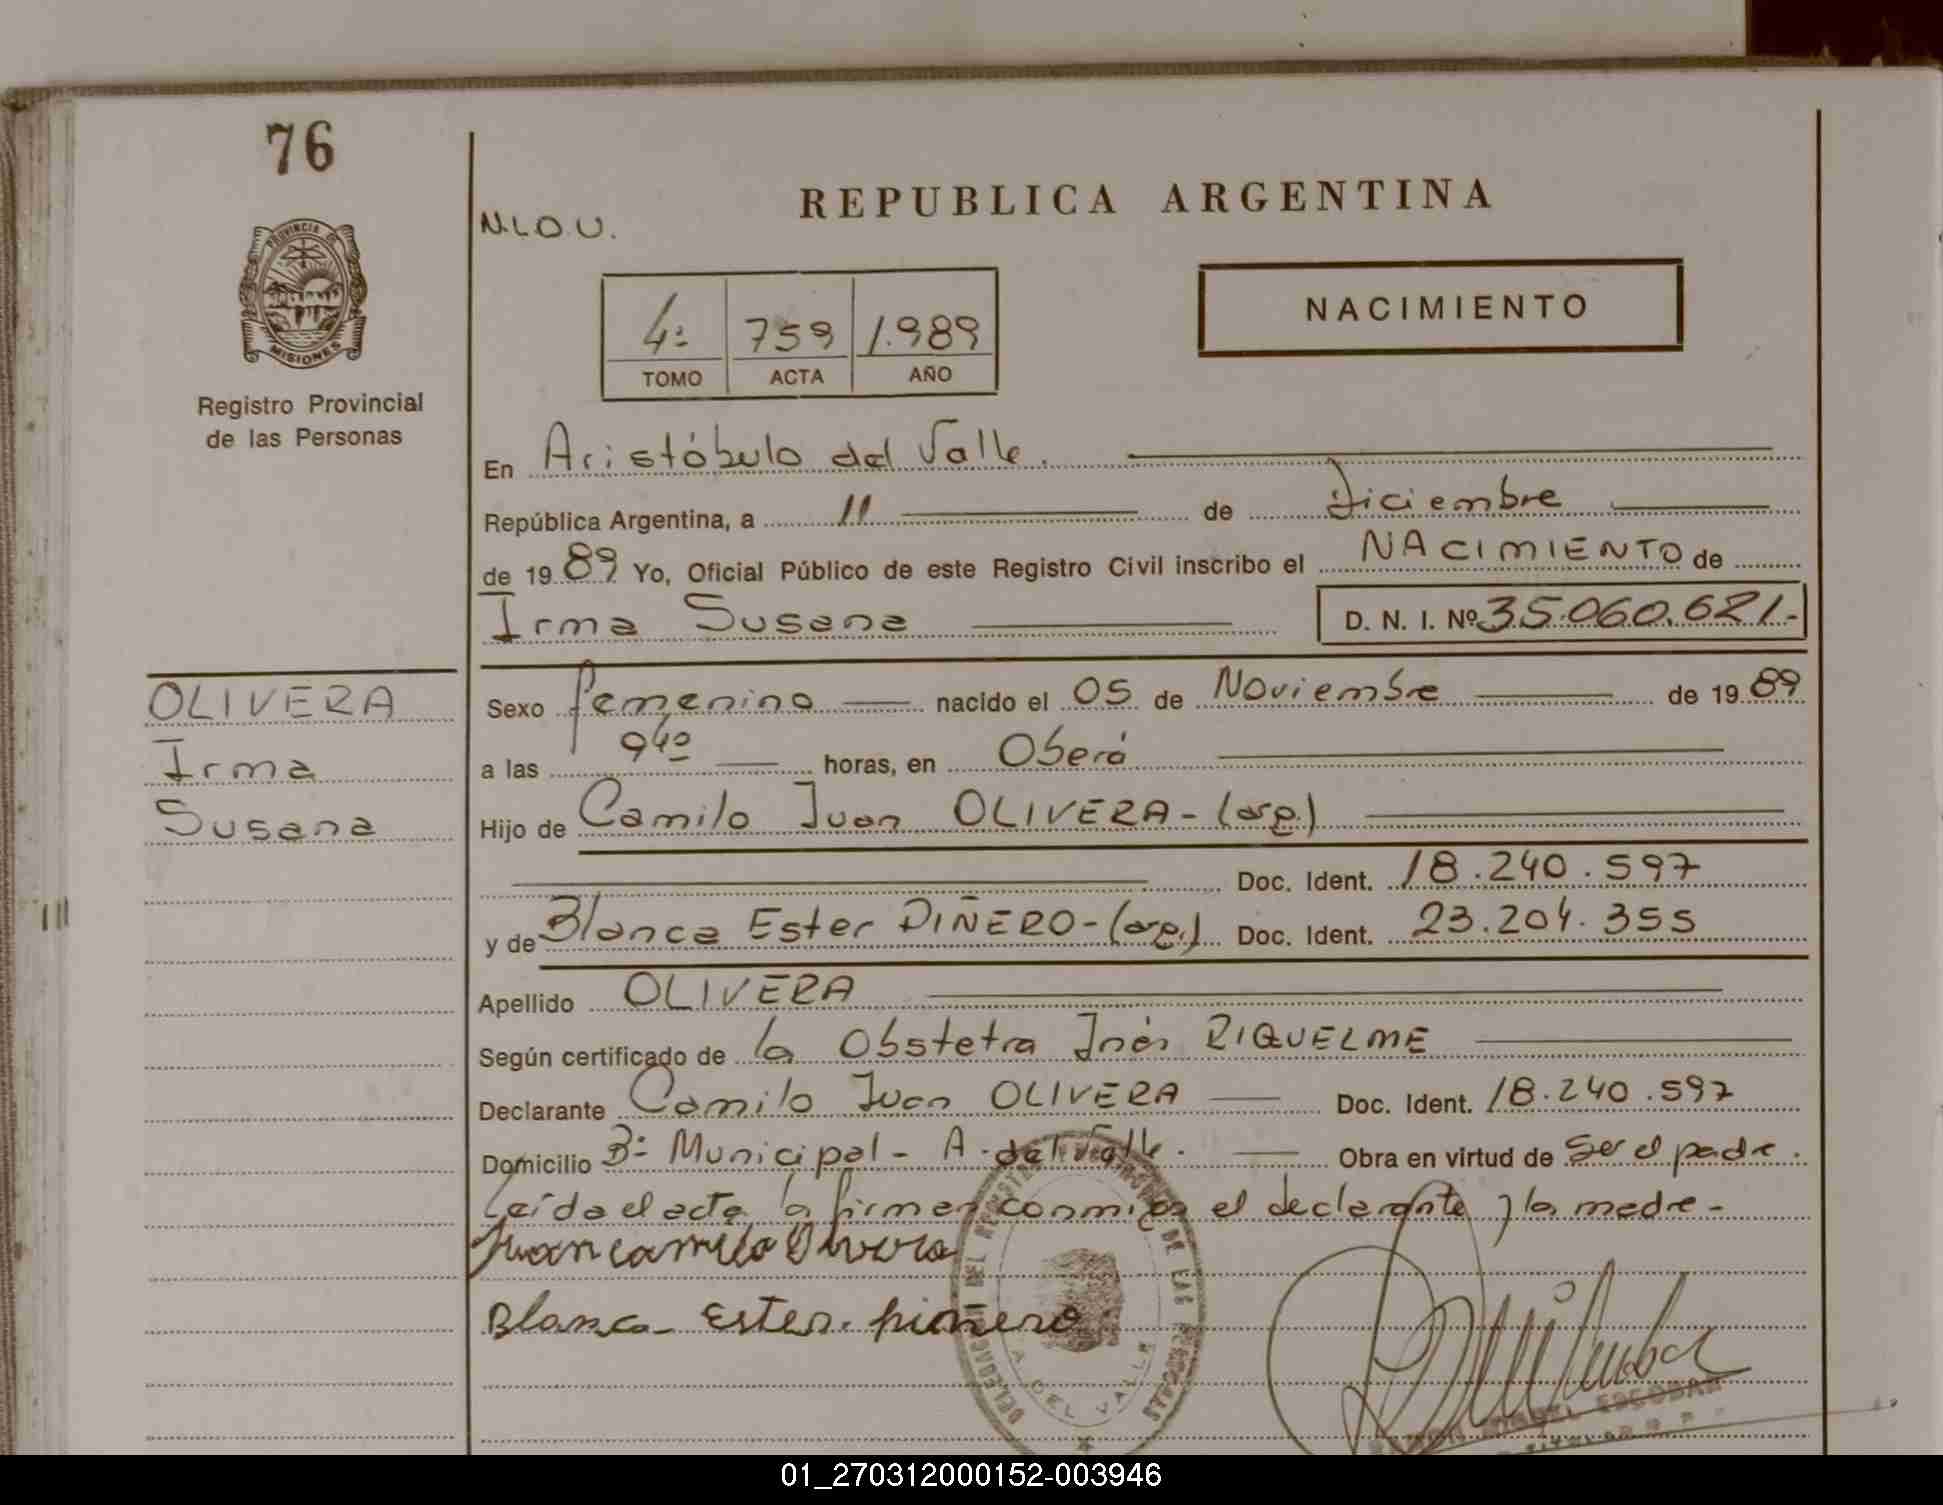 76
N.L.O.U.
REPUBLICA ARGENTINA
PROVINCIA DE
MISIONES
Registro Provincial
de las Personas
4º 759 1.989
TOMO ACTA AÑO
NACIMIENTO
En Aristóbulo del Valle.
República Argentina, a 11 de diciembre
de 1989 Yo, Oficial Público de este Registro Civil inscribo el NACIMIENTO de
Irma Susana D. N. I. Nº 35.060.621.-
OLIVERA
Irma
Susana
Sexo femenino nacido el 05 de Noviembre de 1989
a las 9⁴⁰ horas, en Oberá
Hijo de Camilo Juan OLIVERA - (arg.)
Doc. Ident. 18.240.597
y de Blanca Ester PIÑERO - (arg.) Doc. Ident. 23.204.355
Apellido OLIVERA
Según certificado de la Obstetra Inés RIQUELME
Declarante Camilo Juan OLIVERA Doc. Ident. 18.240.597
Domicilio Bº Municipal - A. del Valle. Obra en virtud de ser el padre.
Leída el acta la firman conmigo el declarante y la madre -
Juan camilo Olivera
Blanca Ester piñero
A. DEL VALLE
ESCOBAR
01_270312000152-003946